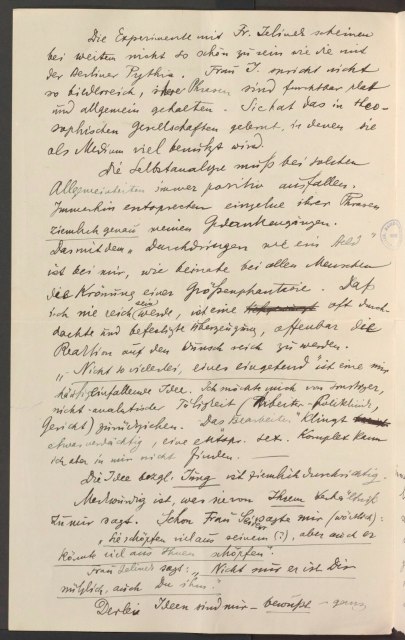 Die Experimente mit Fr. Jelinek scheinen
bei weitem nicht so schön zu sein wie die mit
der Berliner Pythia. Frau J. spricht nicht
so bilderreich, ihre Phrasen sind furchtbar platt
und allgemein gehalten. Sie hat das in theo-
sophischen Gesellschaften gelernt, in denen sie
als Medium viel benützt wird.
Die Selbstanalyse muß bei solchen
Allgemeinheiten immer positiv ausfallen.
Immerhin entsprechen einzelne ihrer Phrasen
ziemlich genau meinen Gedankengängen.
Das mit dem „Durchdringen wie ein Held"
ist bei mir, wie beinahe bei allen Menschen
die Krönung einer Größenphantasie. Daß
ich nie reich sein werde, ist eine oft durch-
dachte und befestigte Überzeugung, offenbar die
Reaktion auf den Wunsch reich zu werden.
„Nicht so vielerlei, eines eingehend" ist eine mir
häufig einfallende Idee. Ich möchte mich von sonstiger,
nicht-analytischer Tätigkeit (Arbeiter-Poliklinik,
Gericht) zurückziehen. Das „Bearbeiten" klingt
etwas verdächtig, eine entspr. sex. Komplex kann
ich aber in mir nicht finden. —
Die Idee bezgl. Jung ist ziemlich durchsichtig.
Merkwürdig ist, was sie von Ihrem Verhältnis
zu mir sagt. Schon Frau Seidler sagte mir (wörtlich):
„Sie schöpfen viel aus seinem (?), aber auch er
könnte viel aus Ihnen schöpfen".
Frau Jelinek sagt: „Nicht nur er ist Dir
nützlich, auch Du ihm."
Derlei Ideen sind mir – bewußt – ganz